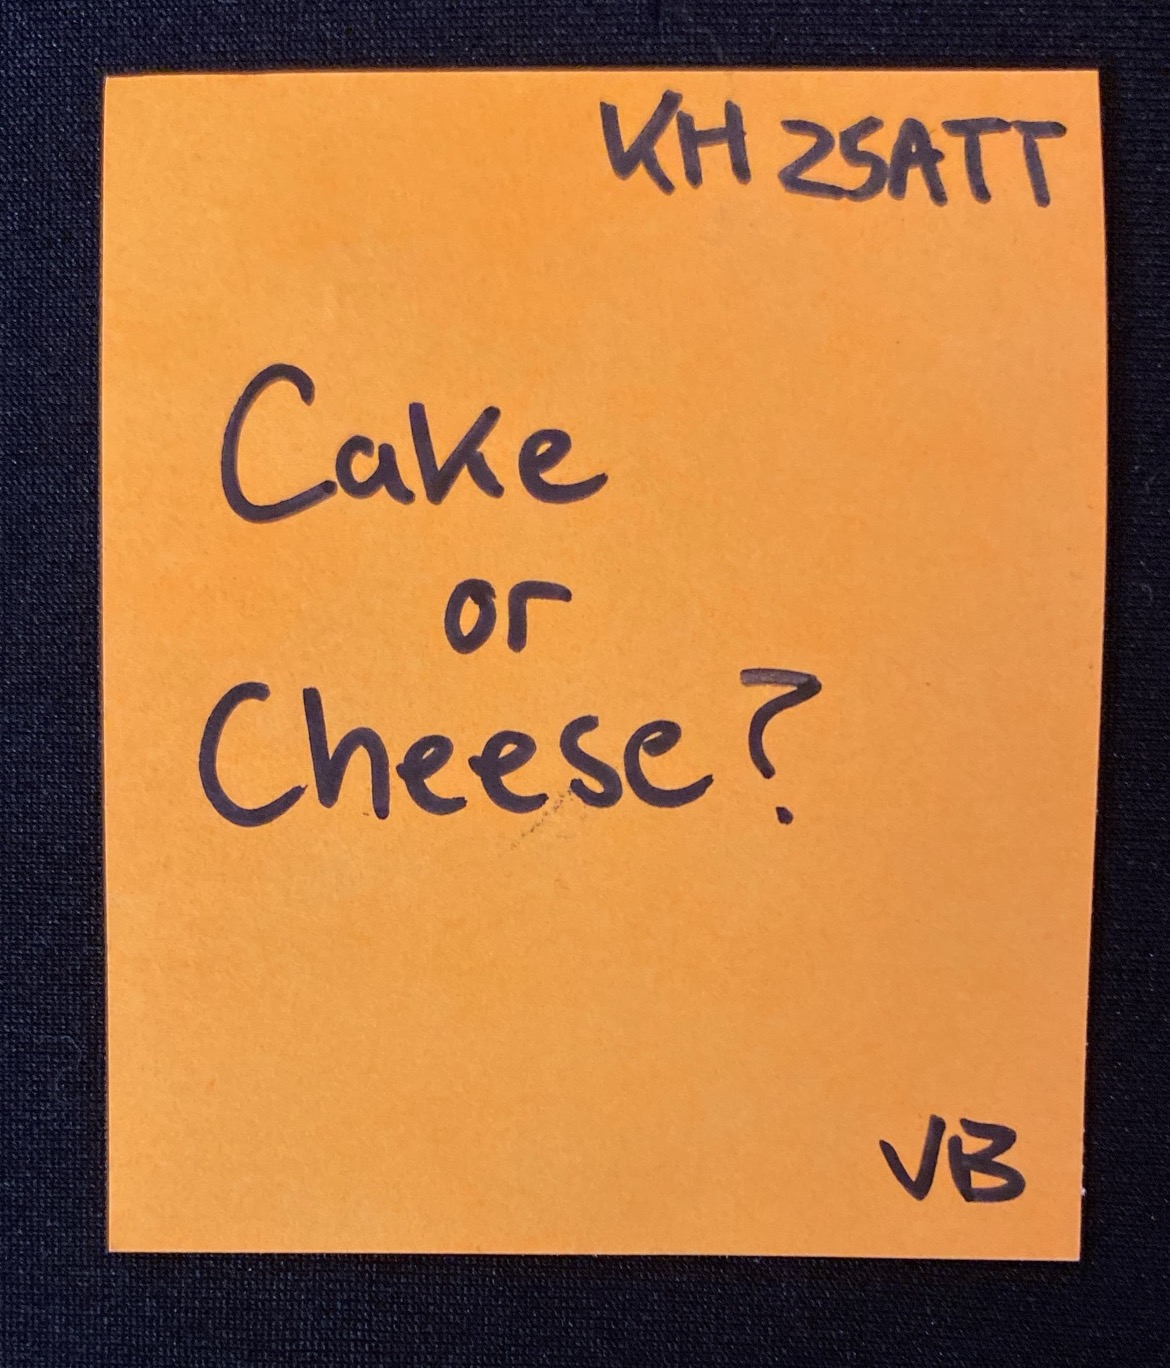 KH 25ATT
Cake
or
Cheese?
VB